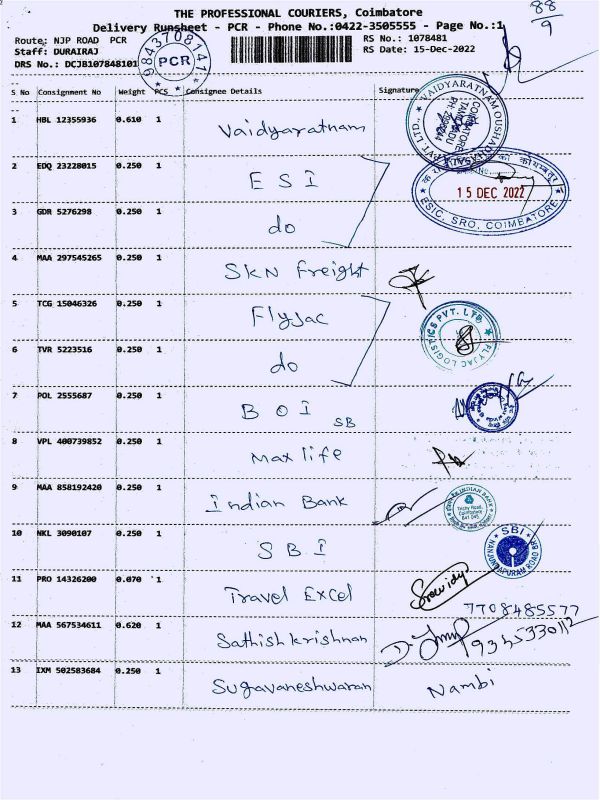 88
9
THE PROFESSIONAL COURIERS, Coimbatore
Delivery Runsheet - PCR - Phone No.:0422-3505555 - Page No.:1
Route: NJP ROAD PCR
RS No.: 1078481
Staff: DURAIRAJ
RS Date: 15-Dec-2022
DRS No.: DCJB107848101
9843708141
PCR
S No Consignment No Weight PCS Consignee Details Signature
1 HBL 12355936 0.610 1 Vaidyaratnam
VAIDYARATNAM OUSHADHASALA PVT LTD.,
COIMBATORE
TAMILNADU
2 EDQ 23228015 0.250 1 ESI
15 DEC 2022
ESIC, SRO, COIMBATORE
3 GDR 5276298 0.250 1 do
4 MAA 297545265 0.250 1 SKN Freight
5 TCG 15046326 0.250 1 Flyjac
FLYJAC LOGISTICS PVT. LTD
6 TVR 5223516 0.250 1 do
7 POL 2555687 0.250 1 BOI SB
8 VPL 400739852 0.250 1 Max life
9 MAA 858192420 0.250 1 Indian Bank
INDIAN BANK
Trichy Road,
Coimbatore
641 045
10 NKL 3090107 0.250 1 SBI
SBI
NANJUNDAPURAM ROAD BR
11 PRO 14326200 0.070 1 Travel Excel
7708485577
12 MAA 567534611 0.620 1 Sathish krishnan
9345330112
13 IXM 502583684 0.250 1 Sugavaneshwaran Nambi